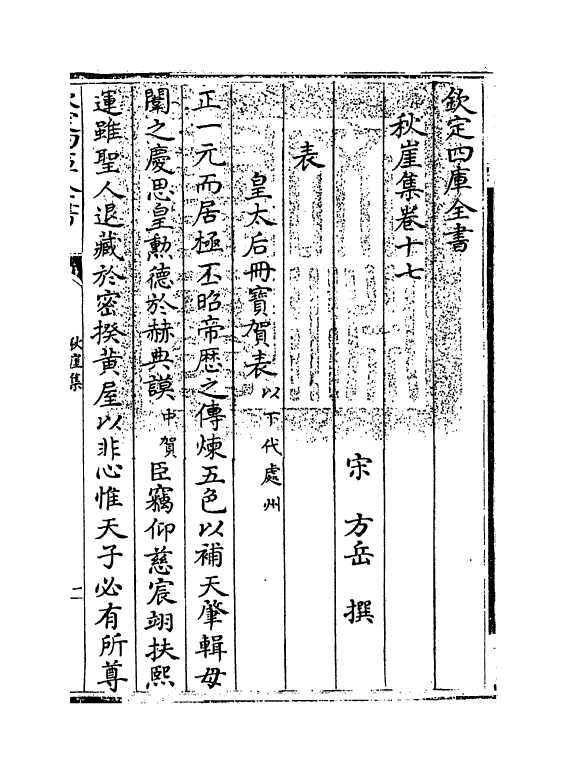 欽定四庫全書
秋崖集卷十七
宋 方岳 撰
表
皇太后冊寶賀表以下代處州
正一元而居極丕昭帝歴之傳煉五色以補天肇輯母
闈之慶思皇勲德於赫典謨中賀臣竊仰慈宸翊扶熙
運雖聖人退藏於密揆黄屋以非心惟天子必有所尊
秋崖集
二